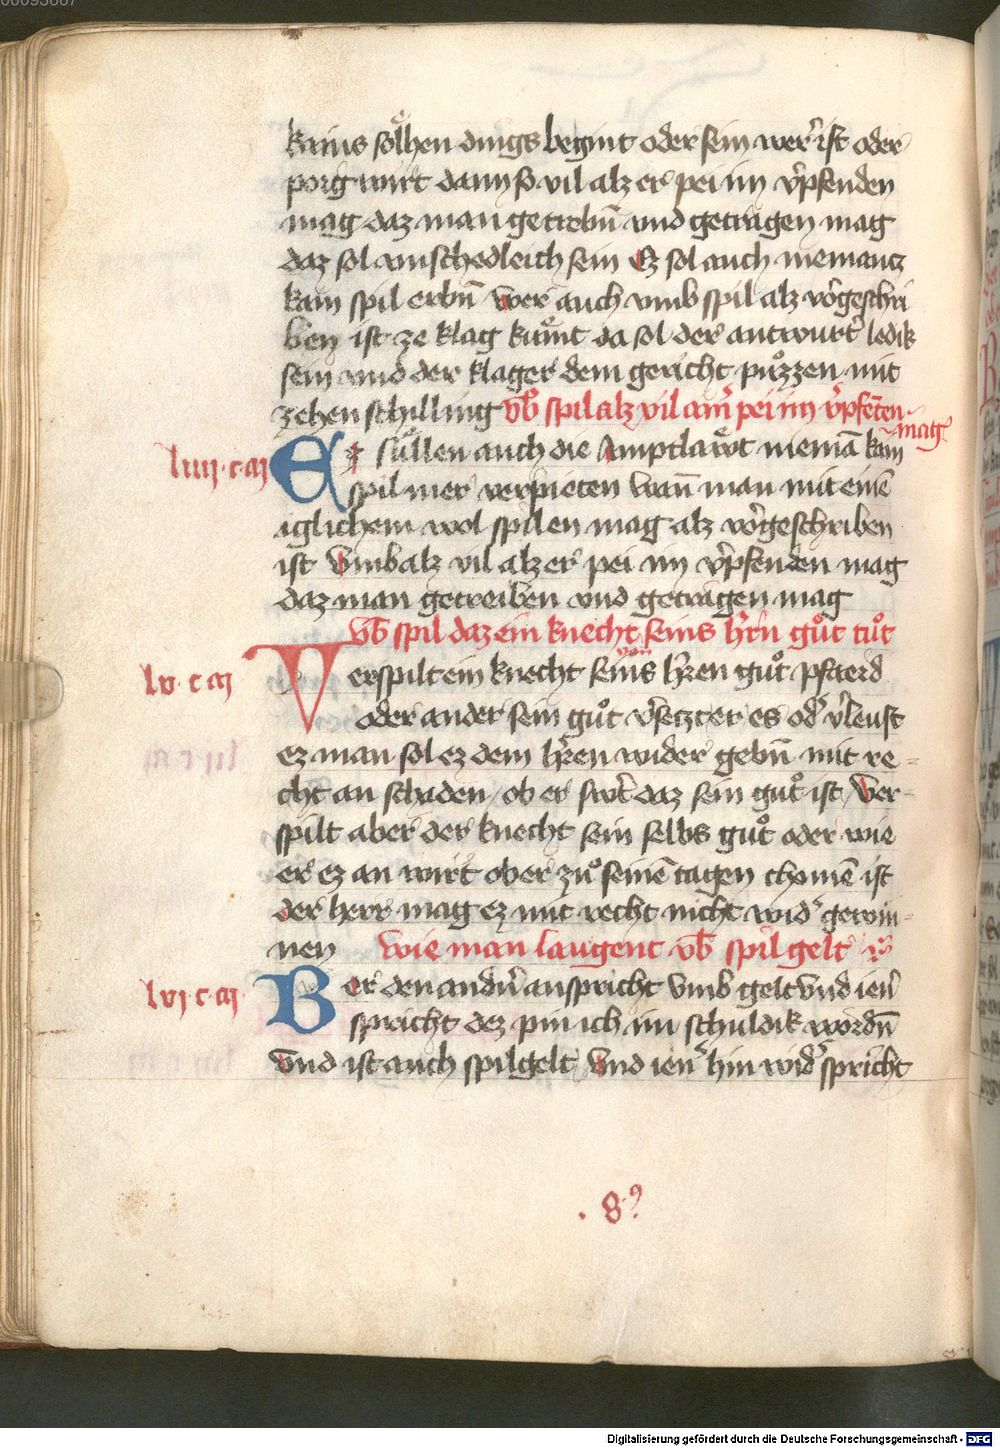 00093667
kains sölhen dings begint oder sein wer' ist oder
porg wirt dann so vil alz er pei im v'pfenden
mag daz man getrebn̄ vnd getragen mag
daz sol vnuschedleich sein Ez sol auch niemantz
kain spil erbn̄ wer auch vmb spil alz vorgeschri
ben ist ze klag kumt da sol der antwurt' ledik
sein vnd der klager dem gericht puͦzzen mit
zehen schilling vb̄ spil alz vil aim' pei im v'pfētēn
mag
liiij · c · m
Ez sullen auch die Amptlaͤwt niemā kain
spil mer verpieten wan̄ man mit einē
iglichem wol spilen mag alz vorgeschriben
ist vmb alz vil alz er pei im v'pfenden mag
daz man getreiben vnd getragen mag
vb̄ spil daz ein knecht seins h'rn guͦt tuͦt
lv · c m
Verspilt ein knecht seins h'ren guͦt pfaerd
von
oder ander sein guͦt v'setzt er es od' v'leust
ez man sol ez dem h'ren wider gebn̄ mit re-
cht an schaden / ob er swert daz sein guͦt ist / Ver-
spilt aber der knecht sein selbs guͦt oder wie
er ez an wirt ob er zuͦ seinē tagen chomē ist
der herr mag ez mit recht nicht wid' gewin-
nen wie man laugent vb̄ spil gelt
lvj · c · m
Wer den andn̄ anspricht vmb gelt vnd ien'
spricht dez pin ich im schuldik wordn̄
vnd ist auch spilgelt vnd ien' hin wid' spricht
· 8 ꝰ
Digitalisierung gefördert durch die Deutsche Forschungsgemeinschaft - DFG